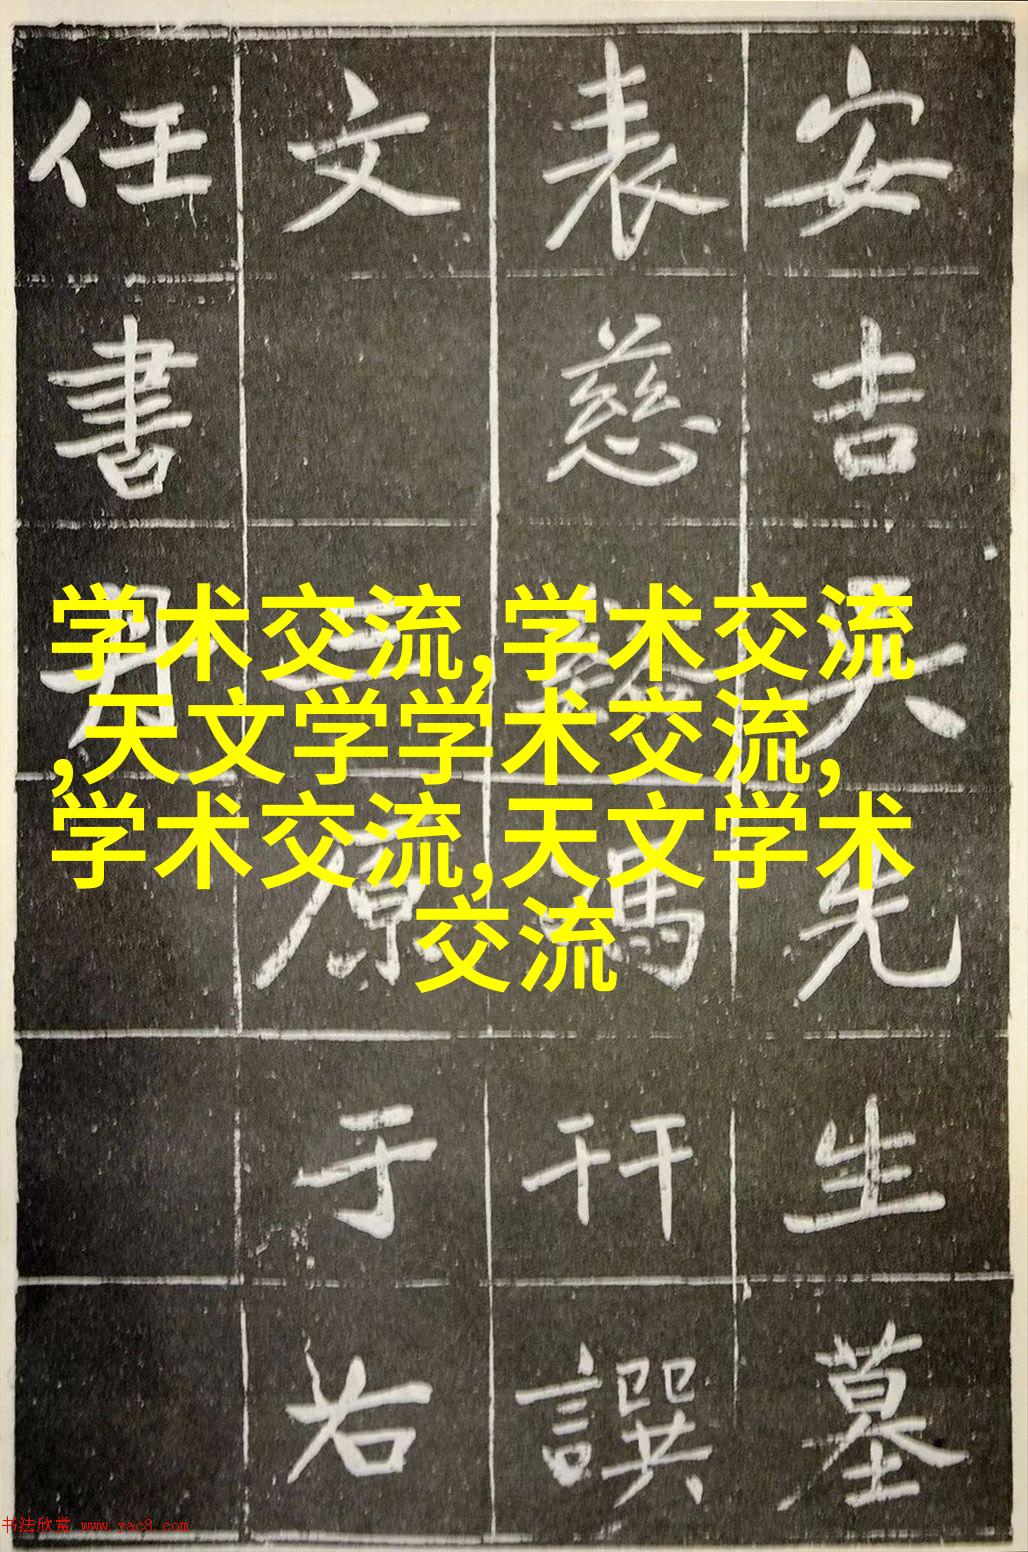 安吉吳先生墓
表慈馮幵譔
文 三原于右
任書丹
学术交流,学术交流
,天文学学术交流,
学术交流,天文学术
交流
书法欣赏 www.yac8.com